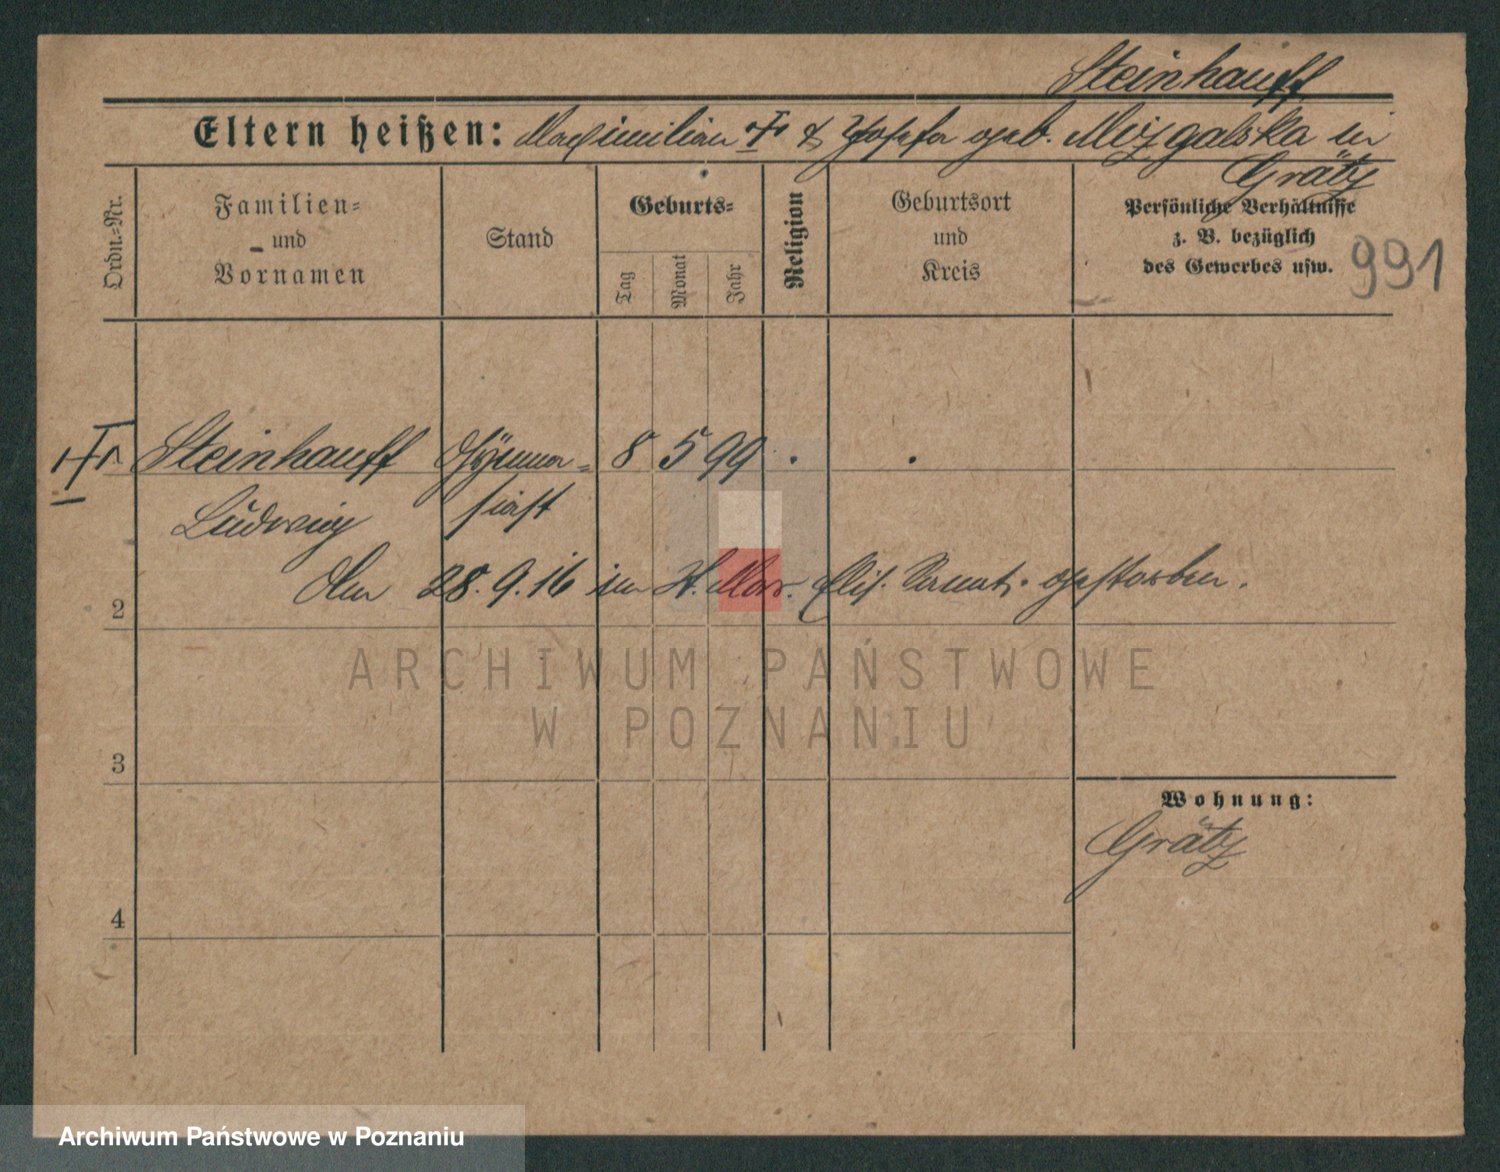 Steinhauff
Eltern heißen: Maximilian & Josefa geb. Mizgalska in
Grätz
Ordn.-Nr.
Familien-
und
Vornamen
Stand
Geburts-
Tag
Monat
Jahr
Religion
Geburtsort
und
Kreis
Persönliche Verhältnisse
z. B. bezüglich
des Gewerbes usw.
991
Steinhauff Gymna- 8 5 99
Ludwig siast
Am 28.9.16 im St. Elis. gestorben.
2
ARCHIWUM PAŃSTWOWE
W POZNANIU
3
Wohnung:
Grätz
4
Archiwum Państwowe w Poznaniu